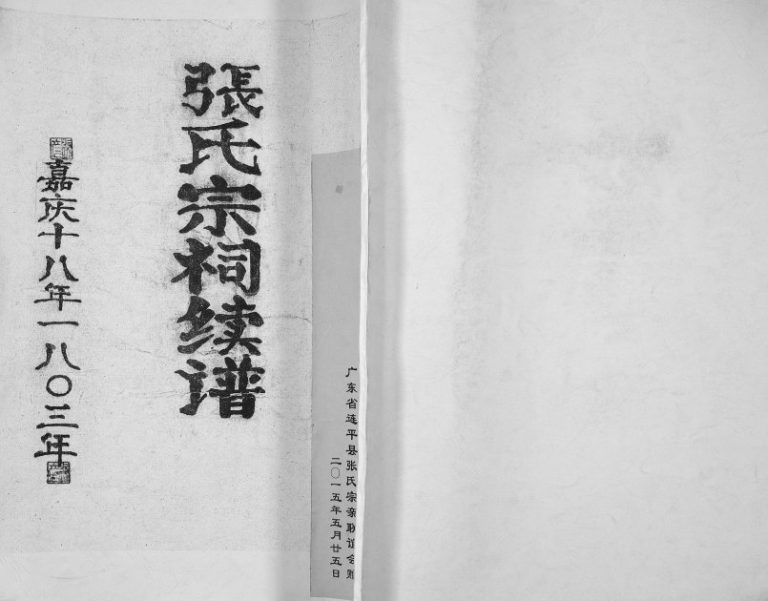 張氏宗祠续谱
嘉庆十八年一八〇三年
广东省连平县张氏宗亲联谊会赠
二〇一五年五月廿五日